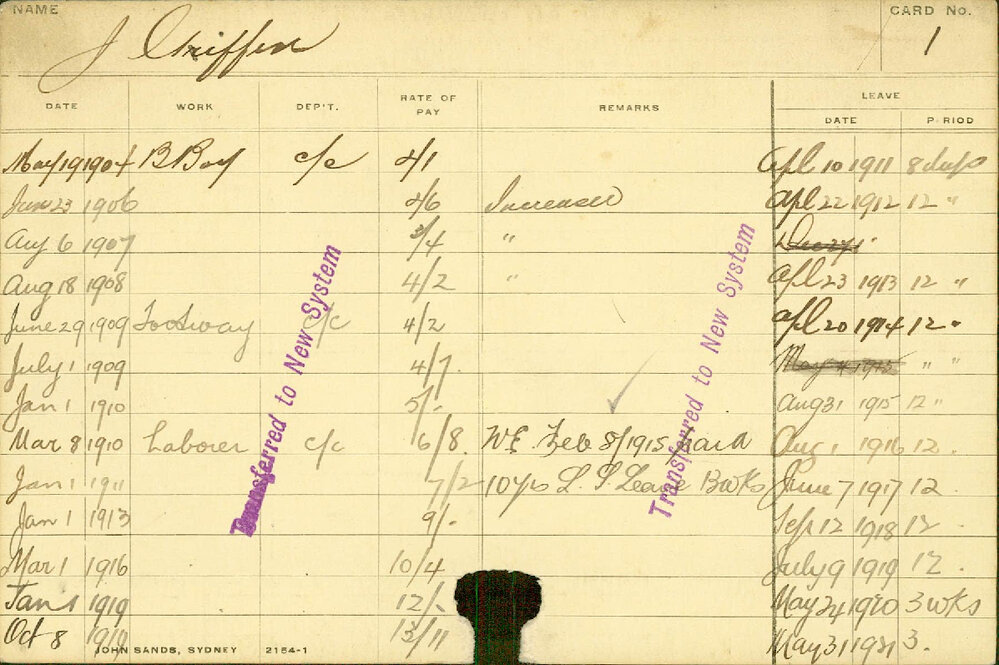 NAME CARD No.
J Griffen 1
DATE WORK DEP'T. RATE OF PAY REMARKS LEAVE
DATE PERIOD
May 19 1904 B Boy c/c 2/1 Apl 10 1911 8 days
Jun 23 1906 2/6 Increased Apl 22 1912 12 "
Aug 6 1907 3/4 "
Aug 18 1908 4/2 " Apl 23 1913 12 "
June 29 1909 Footway c/c 4/2 Apl 20 1914 12 "
July 1 1909 4/7 May 4 1915 " "
Jan 1 1910 5/- Aug 31 1915 12 "
Mar 8 1910 Laborer c/c 6/8 W.E. Feb 8/1915 Aug 1 1916 12
Jan 1 1911 7/2 10 yrs L. S. Leave 13 wks June 7 1917 12
Jan 1 1913 9/- Sep 12 1918 12
Mar 1 1916 10/4 July 9 1919 12
Jan 1 1919 12/- May 24 1920 3 wks
Oct 8 1919 13/11 May 31 1921 3
Transferred to New System
Transferred to New System
JOHN SANDS, SYDNEY 2154-1